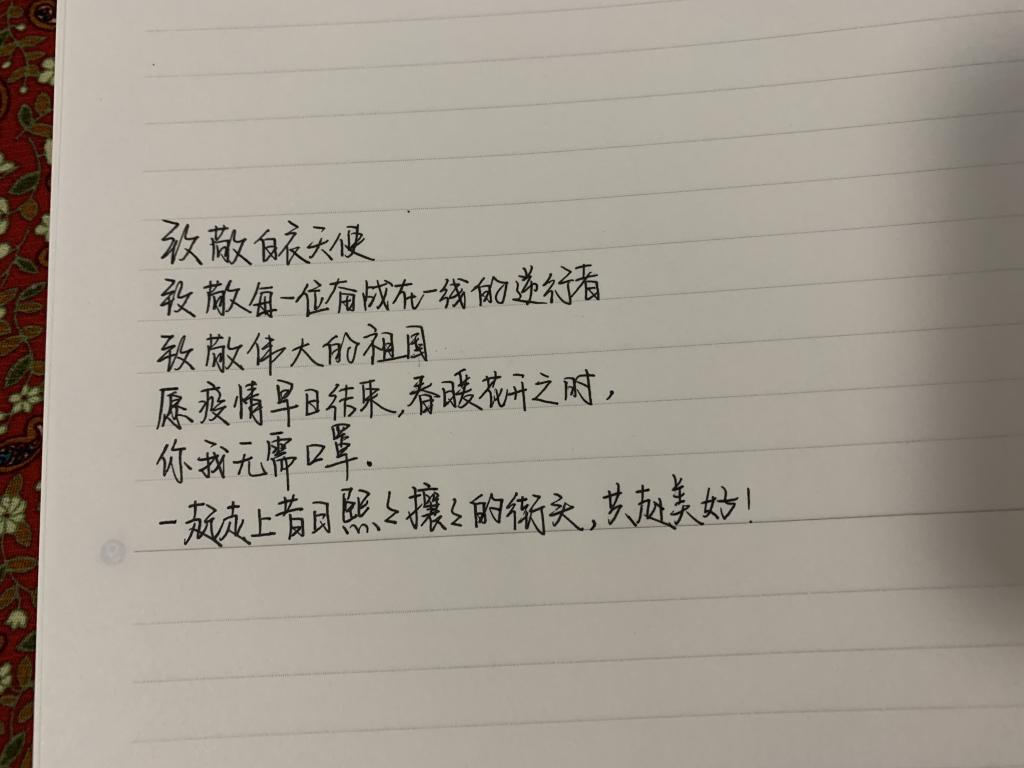 致敬白衣天使
致敬每一位奋战在一线的逆行者
致敬伟大的祖国
愿疫情早日结束,春暖花开之时,
你我无需口罩.
一起走上昔日熙々攘々的街头,共赴美好!